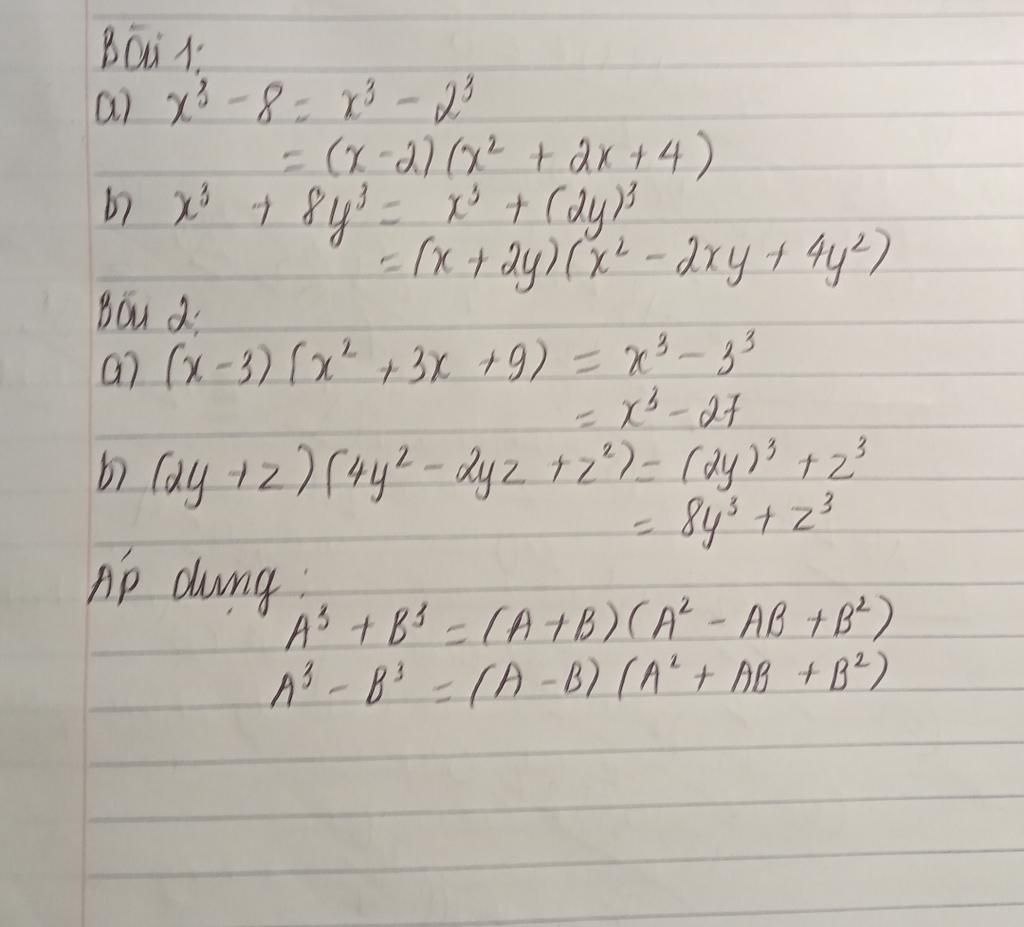 Bài 1:
a) x³ - 8 = x³ - 2³
= (x-2)(x² + 2x + 4)
b) x³ + 8y³ = x³ + (2y)³
= (x + 2y)(x² - 2xy + 4y²)
Bài 2:
a) (x-3)(x² + 3x + 9) = x³ - 3³
= x³ - 27
b) (2y + z)(4y² - 2yz + z²) = (2y)³ + z³
= 8y³ + z³
Áp dụng :
A³ + B³ = (A+B)(A² - AB + B²)
A³ - B³ = (A-B)(A² + AB + B²)